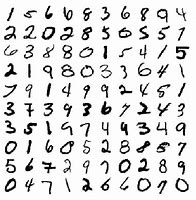 1 5 6 6 8 3 6 8 9 4
2 2 0 2 8 5 6 5 5 7
6 3 8 8 0 1 5 4 1 5
2 1 9 8 0 3 3 6 4 1
7 9 1 4 9 9 2 4 5 1
3 7 3 9 3 6 7 2 4 3
3 5 1 9 7 4 9 3 4 9
0 1 6 0 5 2 8 8 5 7
5 6 7 2 9 7 0 2 8 9
0 4 7 1 2 6 6 0 7 0